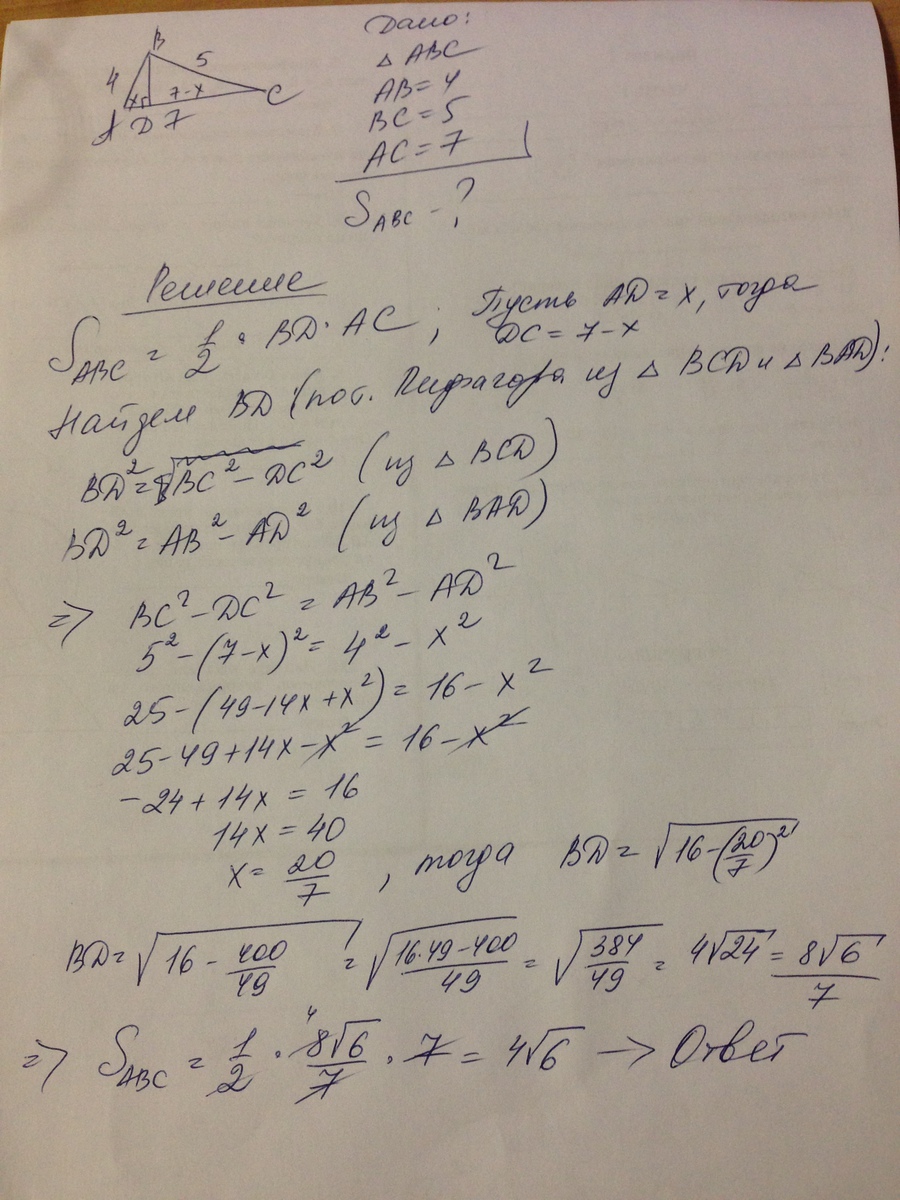 B
4 5
x 7-x
A D 7 C
Дано:
△ ABC
AB = 4
BC = 5
AC = 7
S_ABC - ?
Решение
S_ABC = 1/2 · BD · AC ; Пусть AD = x, тогда
DC = 7-x
Найдем BD (по т. Пифагора из △ BCD и △ BAD):
BD² = BC² - DC² (из △ BCD)
BD² = AB² - AD² (из △ BAD)
=> BC² - DC² = AB² - AD²
5² - (7-x)² = 4² - x²
25 - (49 - 14x + x²) = 16 - x²
25 - 49 + 14x - x² = 16 - x²
-24 + 14x = 16
14x = 40
x = 20/7 , тогда BD = √(16 - (20/7)²)
BD = √(16 - 400/49) = √((16·49 - 400)/49) = √(384/49) = 4√24 = 8√6/7
=> S_ABC = 1/2 · 8√6/7 · 7 = 4√6 → Ответ